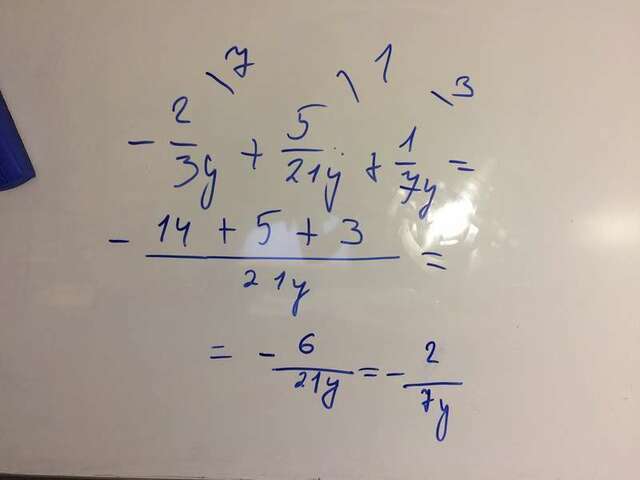 \7 \1 \3
- 2/3y + 5/21y + 1/7y =
- 14 + 5 + 3 / 21y =
= - 6/21y = - 2/7y